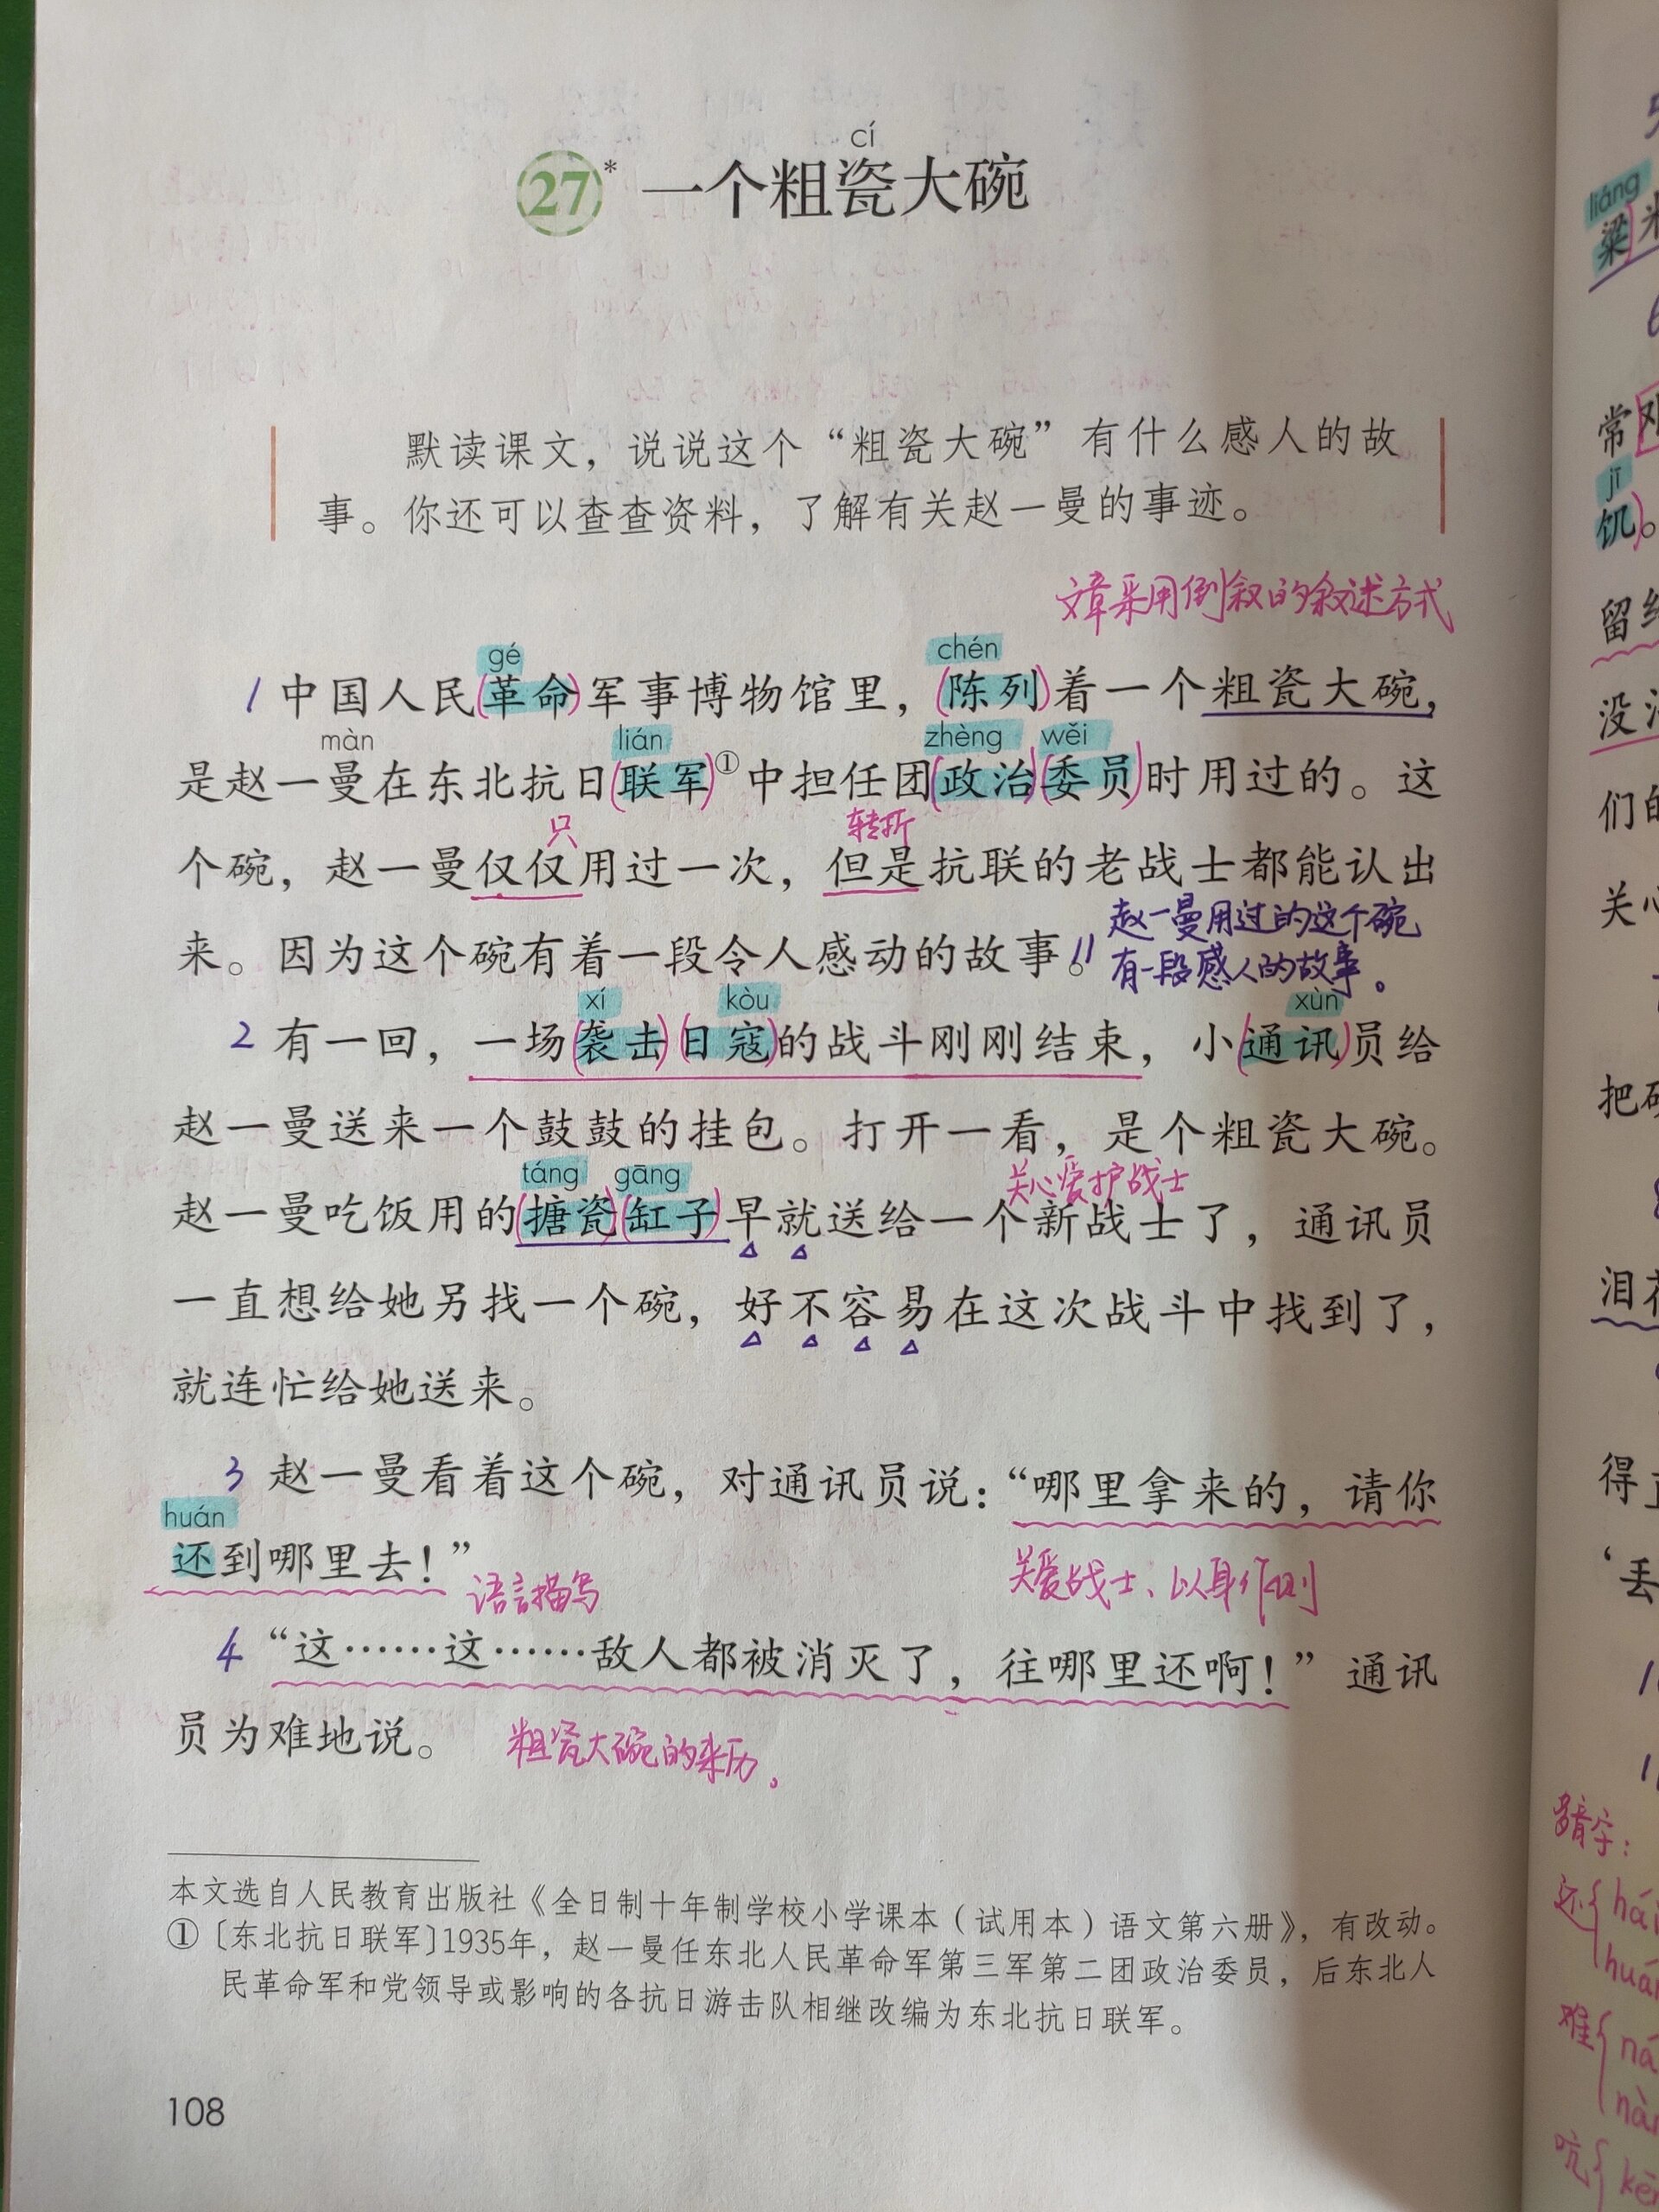 cí
27* 一个粗瓷大碗
默读课文，说说这个“粗瓷大碗”有什么感人的故
事。你还可以查查资料，了解有关赵一曼的事迹。
文章采用倒叙的叙述方式
gé chén
1 中国人民(革命)军事博物馆里，(陈列)着一个粗瓷大碗，
màn lián zhèng wěi
是赵一曼在东北抗日(联军)①中担任团(政治)(委员)时用过的。这
只 转折
个碗，赵一曼仅仅用过一次，但是抗联的老战士都能认出
赵一曼用过的这个碗
来。因为这个碗有着一段令人感动的故事。//
有一段感人的故事。
xí kòu xùn
2 有一回，一场(袭击)(日寇)的战斗刚刚结束，小(通讯)员给
赵一曼送来一个鼓鼓的挂包。打开一看，是个粗瓷大碗。
táng gāng 关心爱护战士
赵一曼吃饭用的(搪瓷)(缸子)早就送给一个新战士了，通讯员
一直想给她另找一个碗，好不容易在这次战斗中找到了，
就连忙给她送来。
3 赵一曼看着这个碗，对通讯员说：“哪里拿来的，请你
huán
还到哪里去！”
语言描写 关爱战士、以身作则
4 “这……这……敌人都被消灭了，往哪里还啊！”通讯
员为难地说。 粗瓷大碗的来历。
本文选自人民教育出版社《全日制十年制学校小学课本（试用本）语文第六册》，有改动。
①〔东北抗日联军〕1935年，赵一曼任东北人民革命军第三军第二团政治委员，后东北人
民革命军和党领导或影响的各抗日游击队相继改编为东北抗日联军。
108
liáng
粱
常
jī
饥)。
留
没
们的
关心
把
泪
得
‘丢
多音字：
还{
难{
吭{